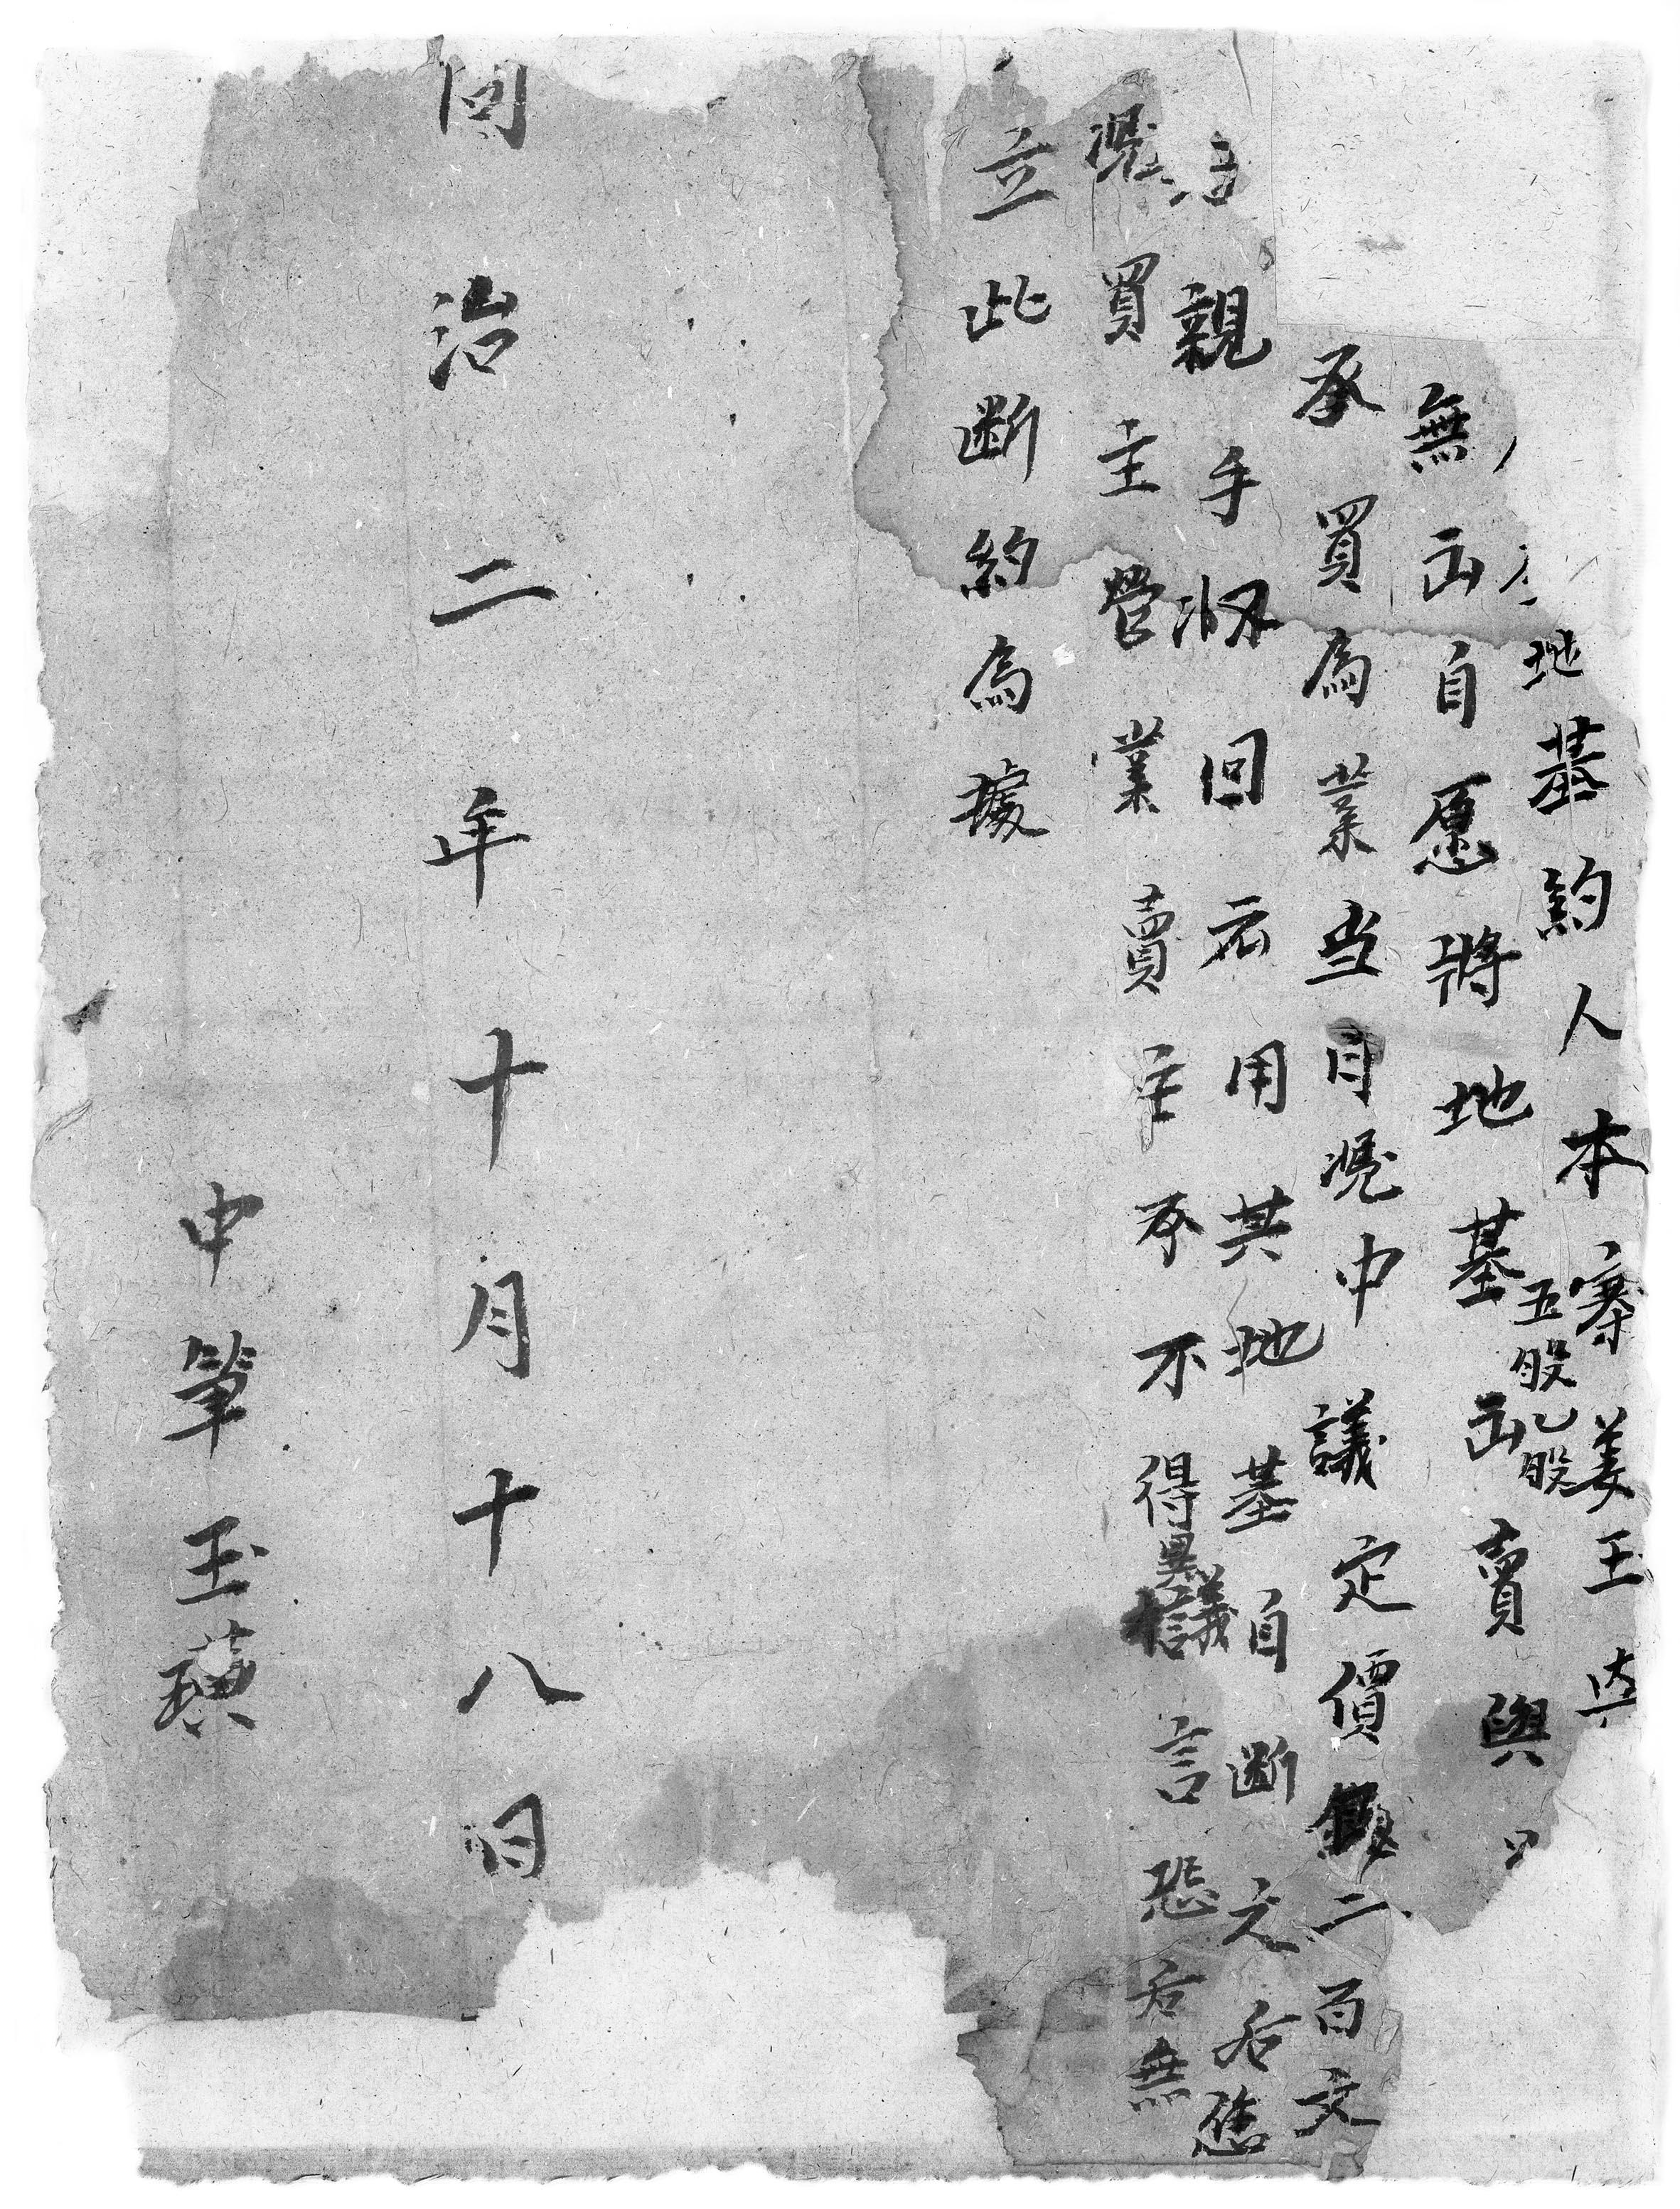 地基約人本寨姜玉
無出自愿將地基五股乙股出賣與
承買為業当日凴中議定價錢二百文
親手収回应用其地基自断之后憑
凴買主營業賣主不得異議言恐后無
立此断約為據
同治二年十月十八日
中筆玉璜